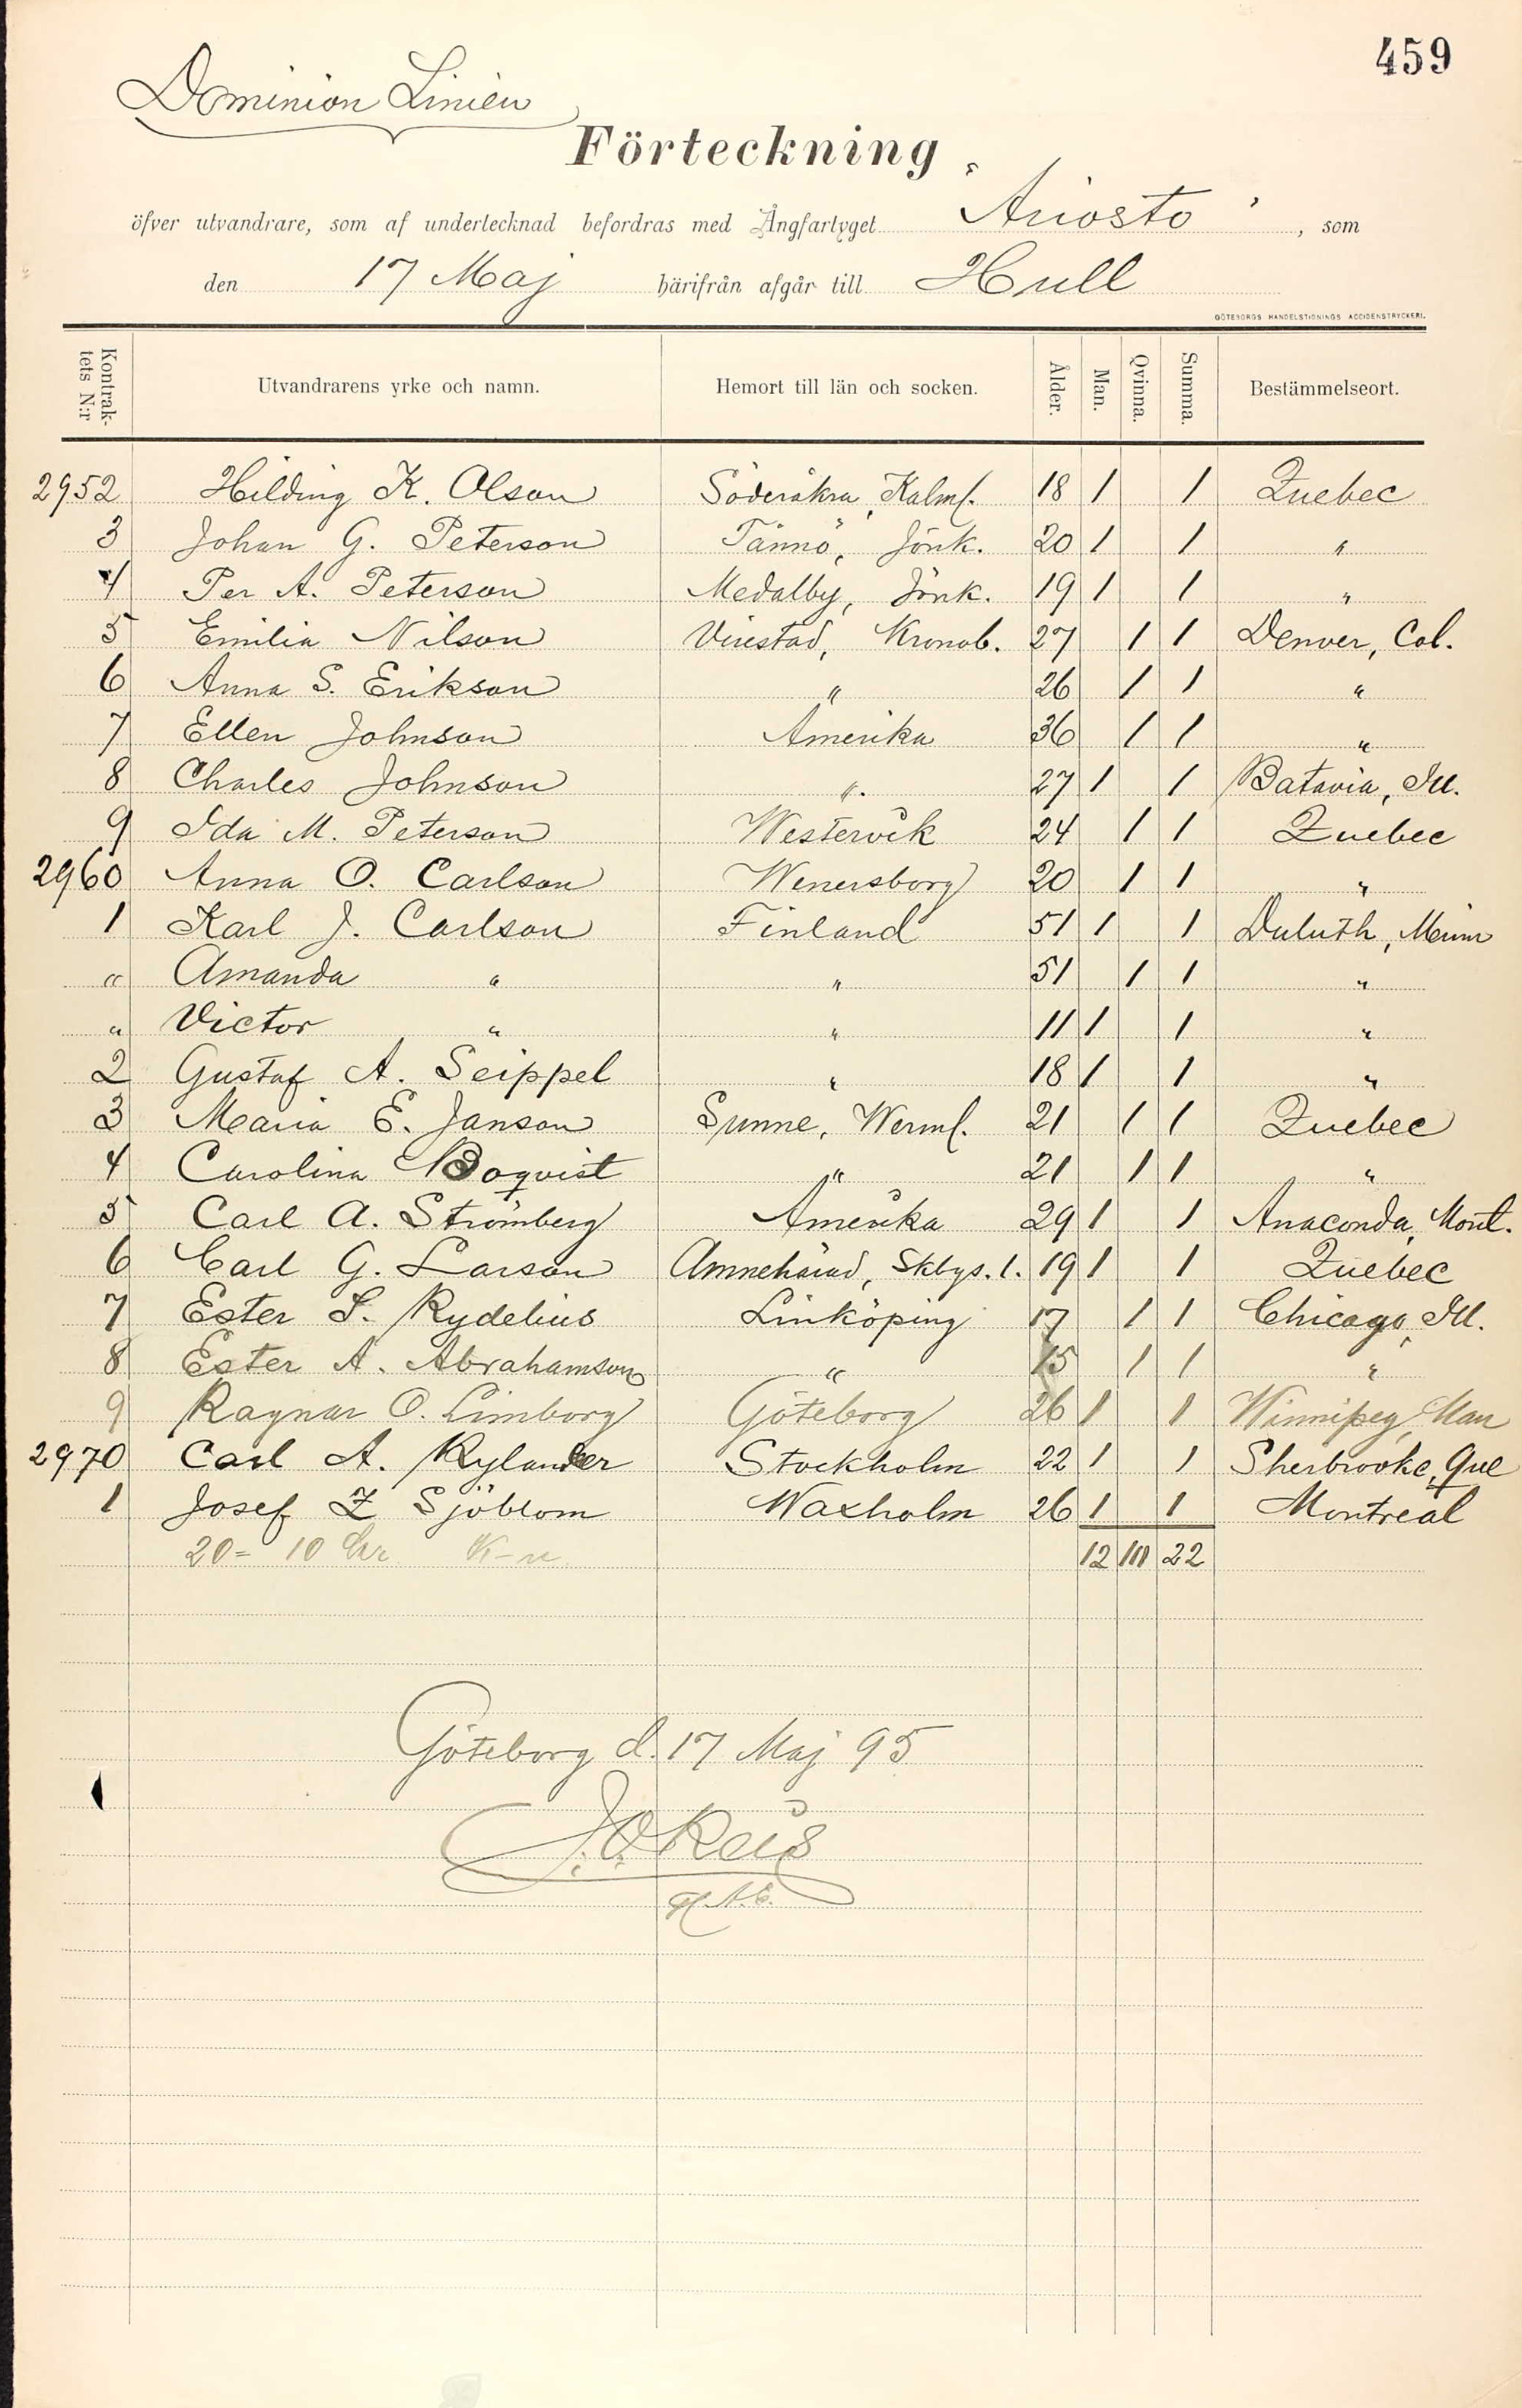 459
Dominion Linien
Förteckning
öfver utvandrare, som af undertecknad befordras med Ångfartyget "Ariosto", som
den 17 Maj härifrån afgår till Hull
GÖTEBORGS HANDELSTIDNINGS ACCIDENSTRYCKERI.
Kontraktets N:r Utvandrarens yrke och namn. Hemort till län och socken. Ålder. Man. Qvinna. Summa. Bestämmelseort.
2952 Hilding K. Olson Söderåkra, Kalml. 18 1 1 Quebec
3 Johan G. Peterson Tånnö, Jönk. 20 1 1 "
4 Per A. Peterson Medalby, Jönk. 19 1 1 "
5 Emilia Nilson Virestad, Kronob. 27 1 1 Denver, Col.
6 Anna S. Erikson " 26 1 1 "
7 Ellen Johnson Amerika 36 1 1 "
8 Charles Johnson " 27 1 1 Batavia, Ill.
9 Ida M. Peterson Westervik 24 1 1 Quebec
2960 Anna O. Carlson Wenersborg 20 1 1 "
1 Karl J. Carlson Finland 51 1 1 Duluth, Minn
" Amanda " " 51 1 1 "
" Victor " " 11 1 1 "
2 Gustaf A. Seippel " 18 1 1 "
3 Maria E. Janson Sunne, Werml. 21 1 1 Quebec
4 Carolina Boqvist " 21 1 1 "
5 Carl A. Strömberg Amerika 29 1 1 Anaconda, Mont.
6 Carl G. Larson Amnehärad, Skbgs. l. 19 1 1 Quebec
7 Ester S. Rydelius Linköping 17 1 1 Chicago, Ill.
8 Ester A. Abrahamson " 15 1 1 "
9 Ragnar O. Limborg Göteborg 26 1 1 Winnipeg, Man
2970 Carl A. Rylander Stockholm 22 1 1 Sherbrooke, Que
1 Josef Z Sjöblom Waxholm 26 1 1 Montreal
20= 10 12 10 22
Göteborg d. 17 Maj 95
J. O. Reis